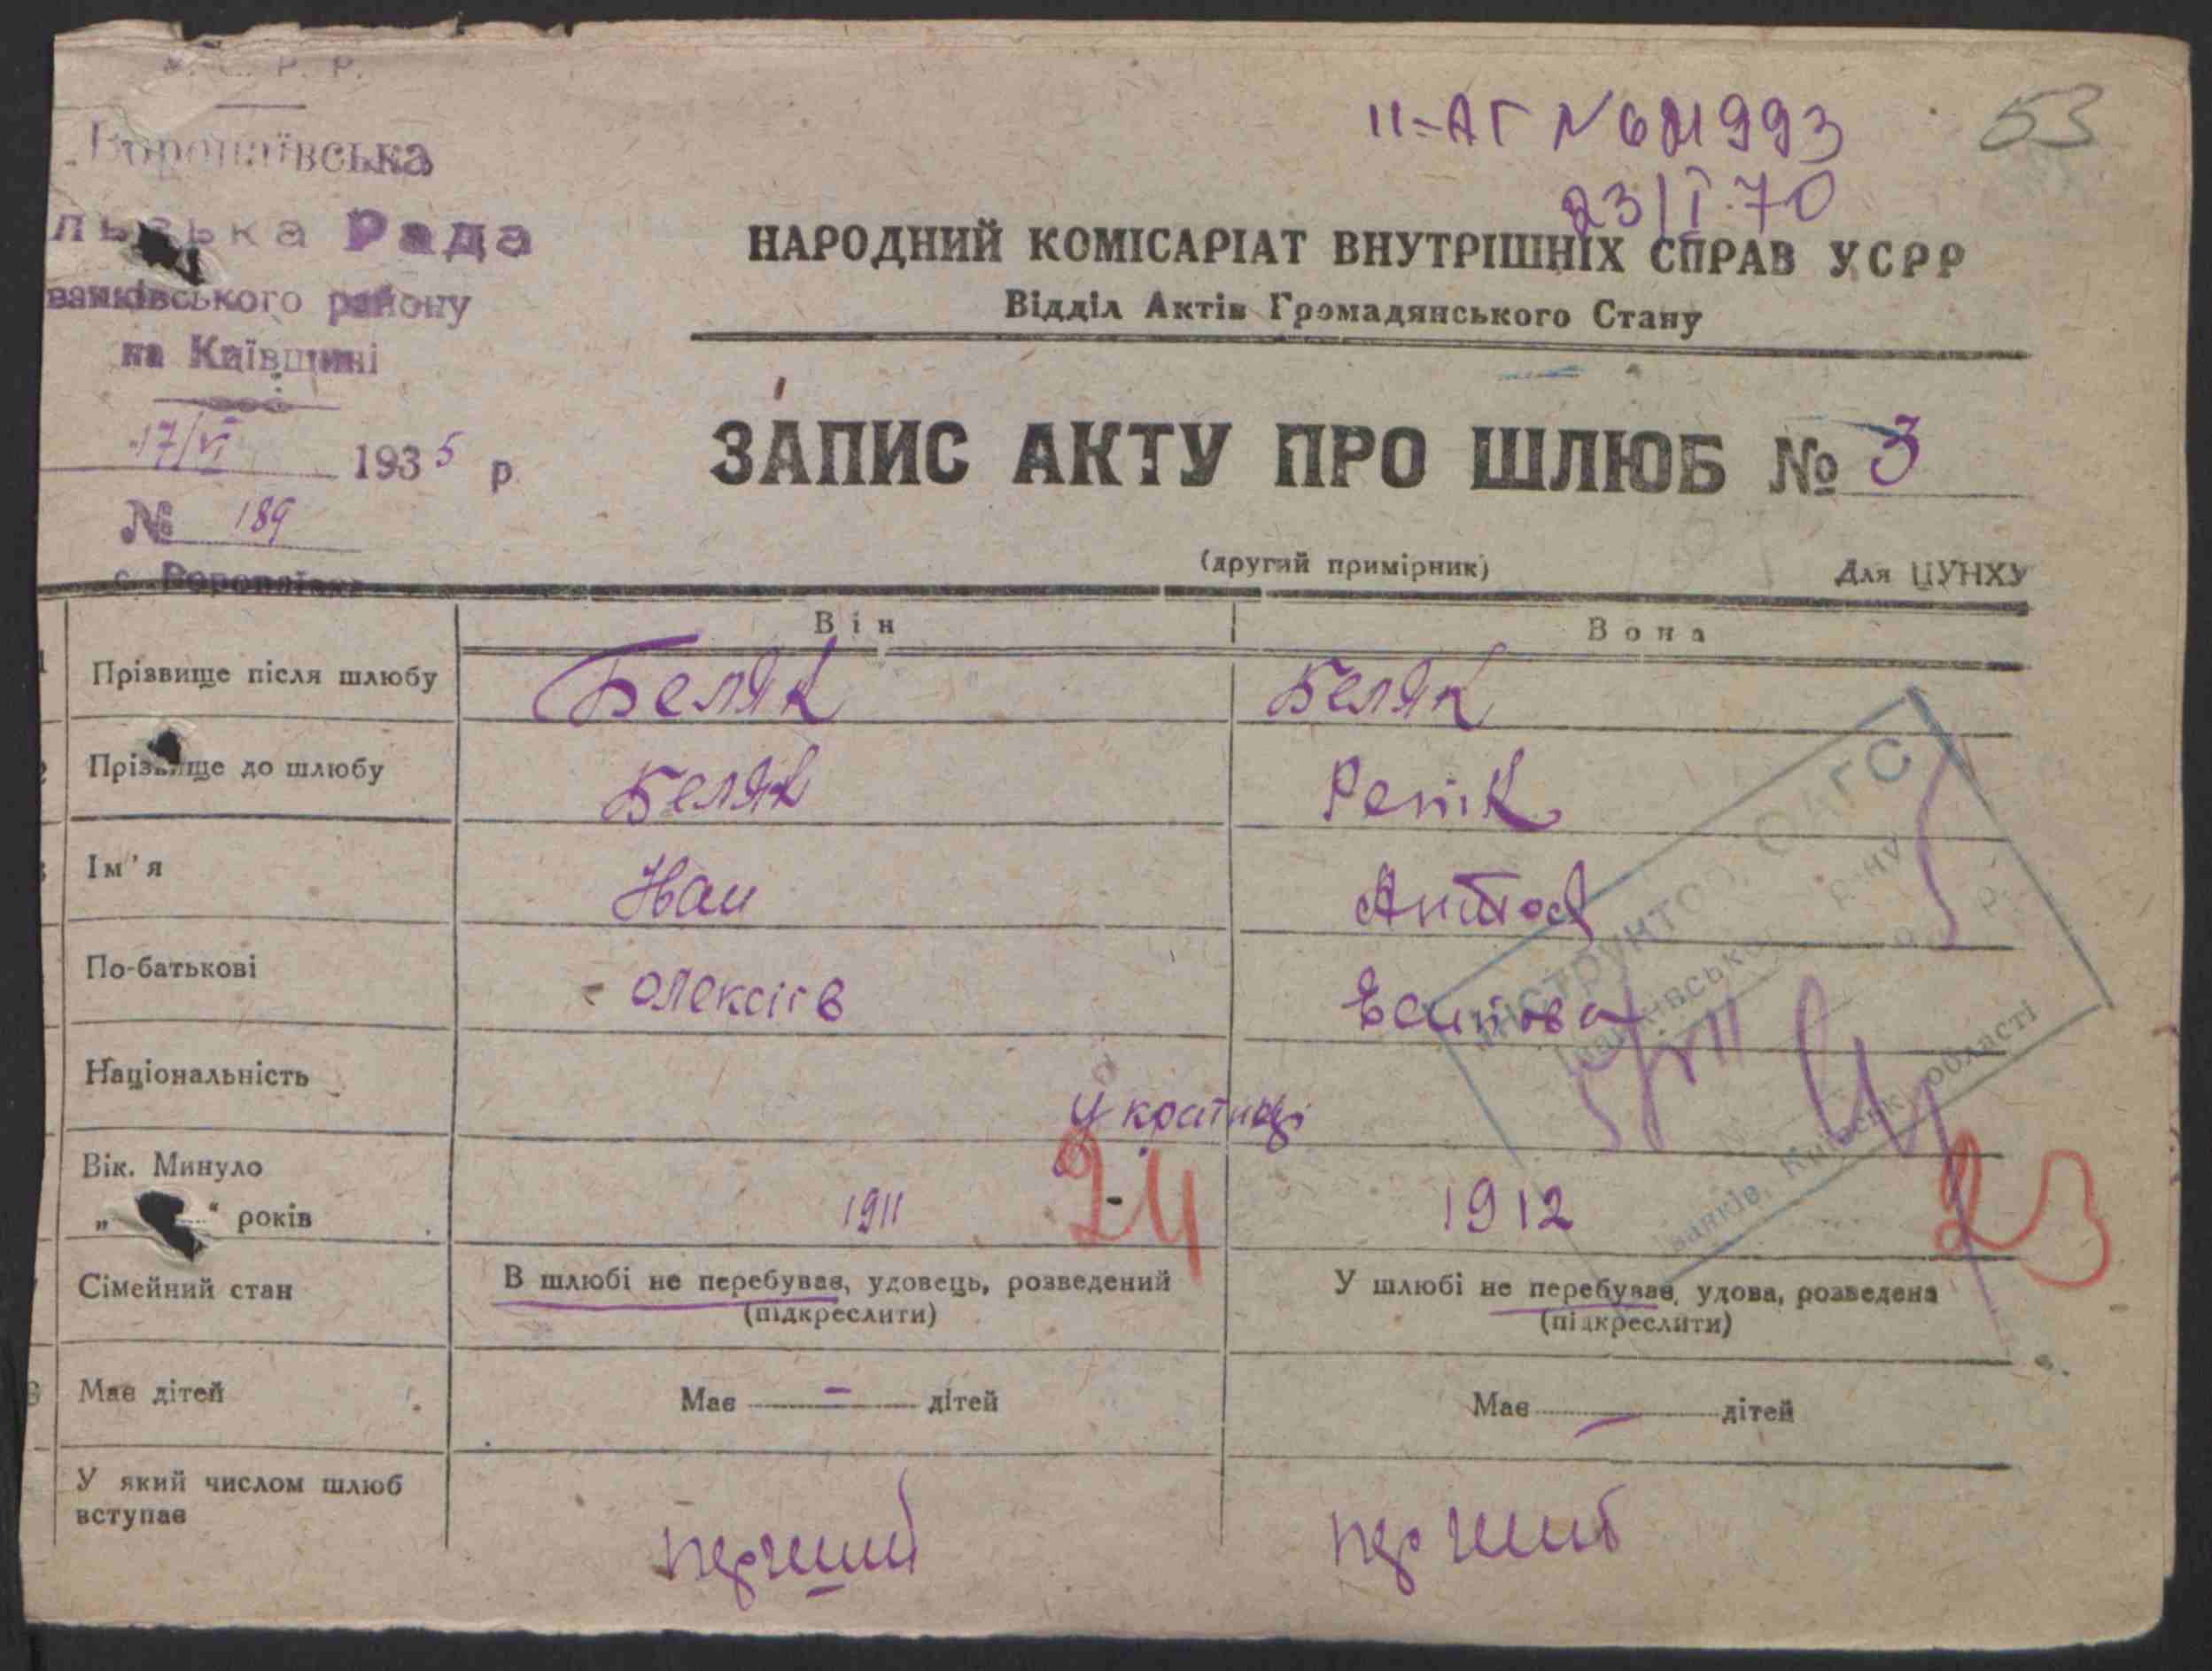 У. С. Р. Р.
льська Рада
ванківського району
на Київщині
17/VI 1935 р.
№ 189
II-АГ №
23/I-70
53
НАРОДНИЙ КОМІСАРІАТ ВНУТРІШНІХ СПРАВ УСРР
Відділ Актів Громадянського Стану
ЗАПИС АКТУ ПРО ШЛЮБ № 3
(другий примірник)
Для ЦУНХУ
Він
Вона
Прізвище після шлюбу Беляк Беляк
Прізвище до шлюбу Беляк Репік
Ім'я Іван
По-батькові Олексіів
Національність Українці
Вік. Минуло
„ “ років 1911 24 1912 23
Сімейний стан В шлюбі не перебував, удовець, розведений У шлюбі не перебував, удова, розведена
(підкреслити) (підкреслити)
Має дітей Має - дітей Має - дітей
У який числом шлюб
вступає
перший перший
ІНСТРУКТОР ОАГС
р-ну
Київськ. області